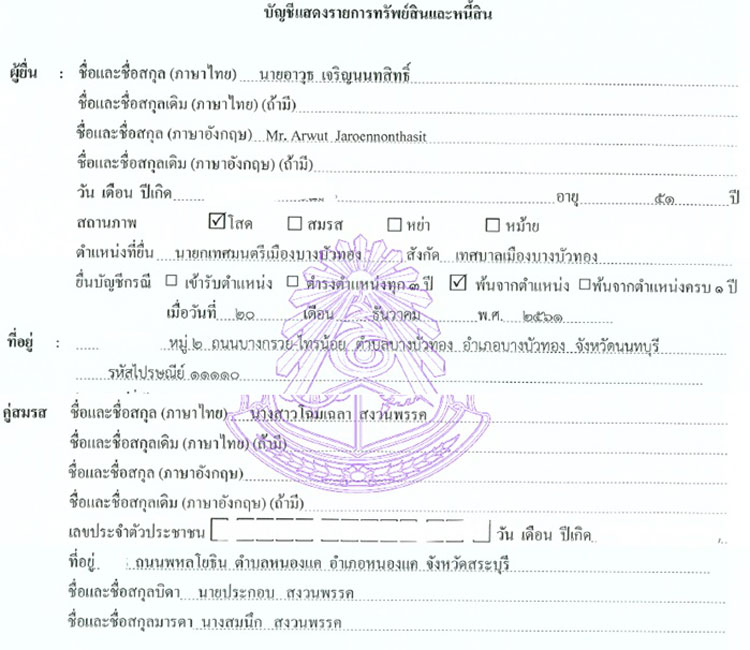 บัญชีแสดงรายการทรัพย์สินและหนี้สิน
ผู้ยื่น : ชื่อและชื่อสกุล (ภาษาไทย) นายอาวุธ เจริญนนทสิทธิ์
ชื่อและชื่อสกุลเดิม (ภาษาไทย) (ถ้ามี)
ชื่อและชื่อสกุล (ภาษาอังกฤษ) Mr. Arwut Jaroennonthasit
ชื่อและชื่อสกุลเดิม (ภาษาอังกฤษ) (ถ้ามี)
วัน เดือน ปีเกิด อายุ ๕๑ ปี
สถานภาพ ☑ โสด ☐ สมรส ☐ หย่า ☐ หม้าย
ตำแหน่งที่ยื่น นายกเทศมนตรีเมืองบางบัวทอง สังกัด เทศบาลเมืองบางบัวทอง
ยื่นบัญชีกรณี ☐ เข้ารับตำแหน่ง ☐ ดำรงตำแหน่งทุก ๓ ปี ☑ พ้นจากตำแหน่ง ☐ พ้นจากตำแหน่งครบ ๑ ปี
เมื่อวันที่ ๒๐ เดือน ธันวาคม พ.ศ. ๒๕๖๑
ที่อยู่ : หมู่ ๒ ถนนบางกรวย-ไทรน้อย ตำบลบางบัวทอง อำเภอบางบัวทอง จังหวัดนนทบุรี
รหัสไปรษณีย์ ๑๑๑๑๐
คู่สมรส ชื่อและชื่อสกุล (ภาษาไทย) นางสาวโฉมเฉลา สงวนพรรค
ชื่อและชื่อสกุลเดิม (ภาษาไทย) (ถ้ามี)
ชื่อและชื่อสกุล (ภาษาอังกฤษ)
ชื่อและชื่อสกุลเดิม (ภาษาอังกฤษ) (ถ้ามี)
เลขประจำตัวประชาชน วัน เดือน ปีเกิด
ที่อยู่ ถนนพหลโยธิน ตำบลหนองแค อำเภอหนองแค จังหวัดสระบุรี
ชื่อและชื่อสกุลบิดา นายประกอบ สงวนพรรค
ชื่อและชื่อสกุลมารดา นางสมนึก สงวนพรรค